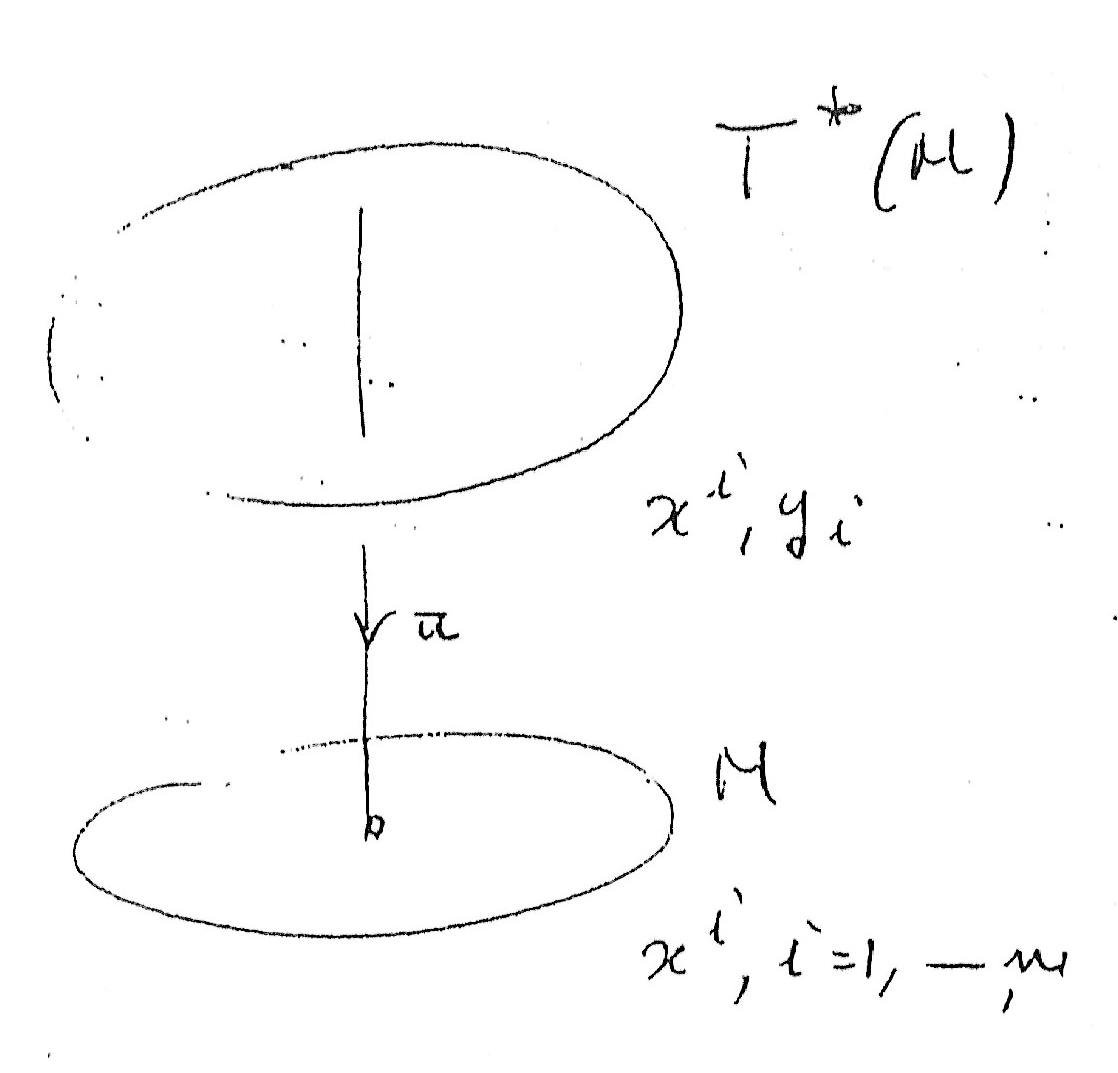 T*(M)
xⁱ, yᵢ
π
M
xⁱ, i=1, — , n